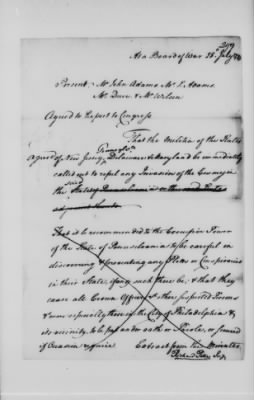 209
At a Board of War 28 July
Present, Mr John Adams Mr S. Adams
Mr. Duer & Mr Wilson
Agreed to Report to Congress
That the Militia of the States
agreed of New Jersey, Delaware & Maryland be immediately
called out to repel any Invasion of the Enemy in
the State of Pensylvania
That it be recommended to the Executive Power
of the State of Pennsylvania to be careful in
discovering & prosecuting any Plots or Conspiracies
in their State, if any such there be; & that they
cause all Crown Officers & other suspected Persons
& more especially those in the City of Philadelphia &
its vicinity, to be put under oath or Parole, or secured
Extract from the Minutes
Richard Peters Secy.